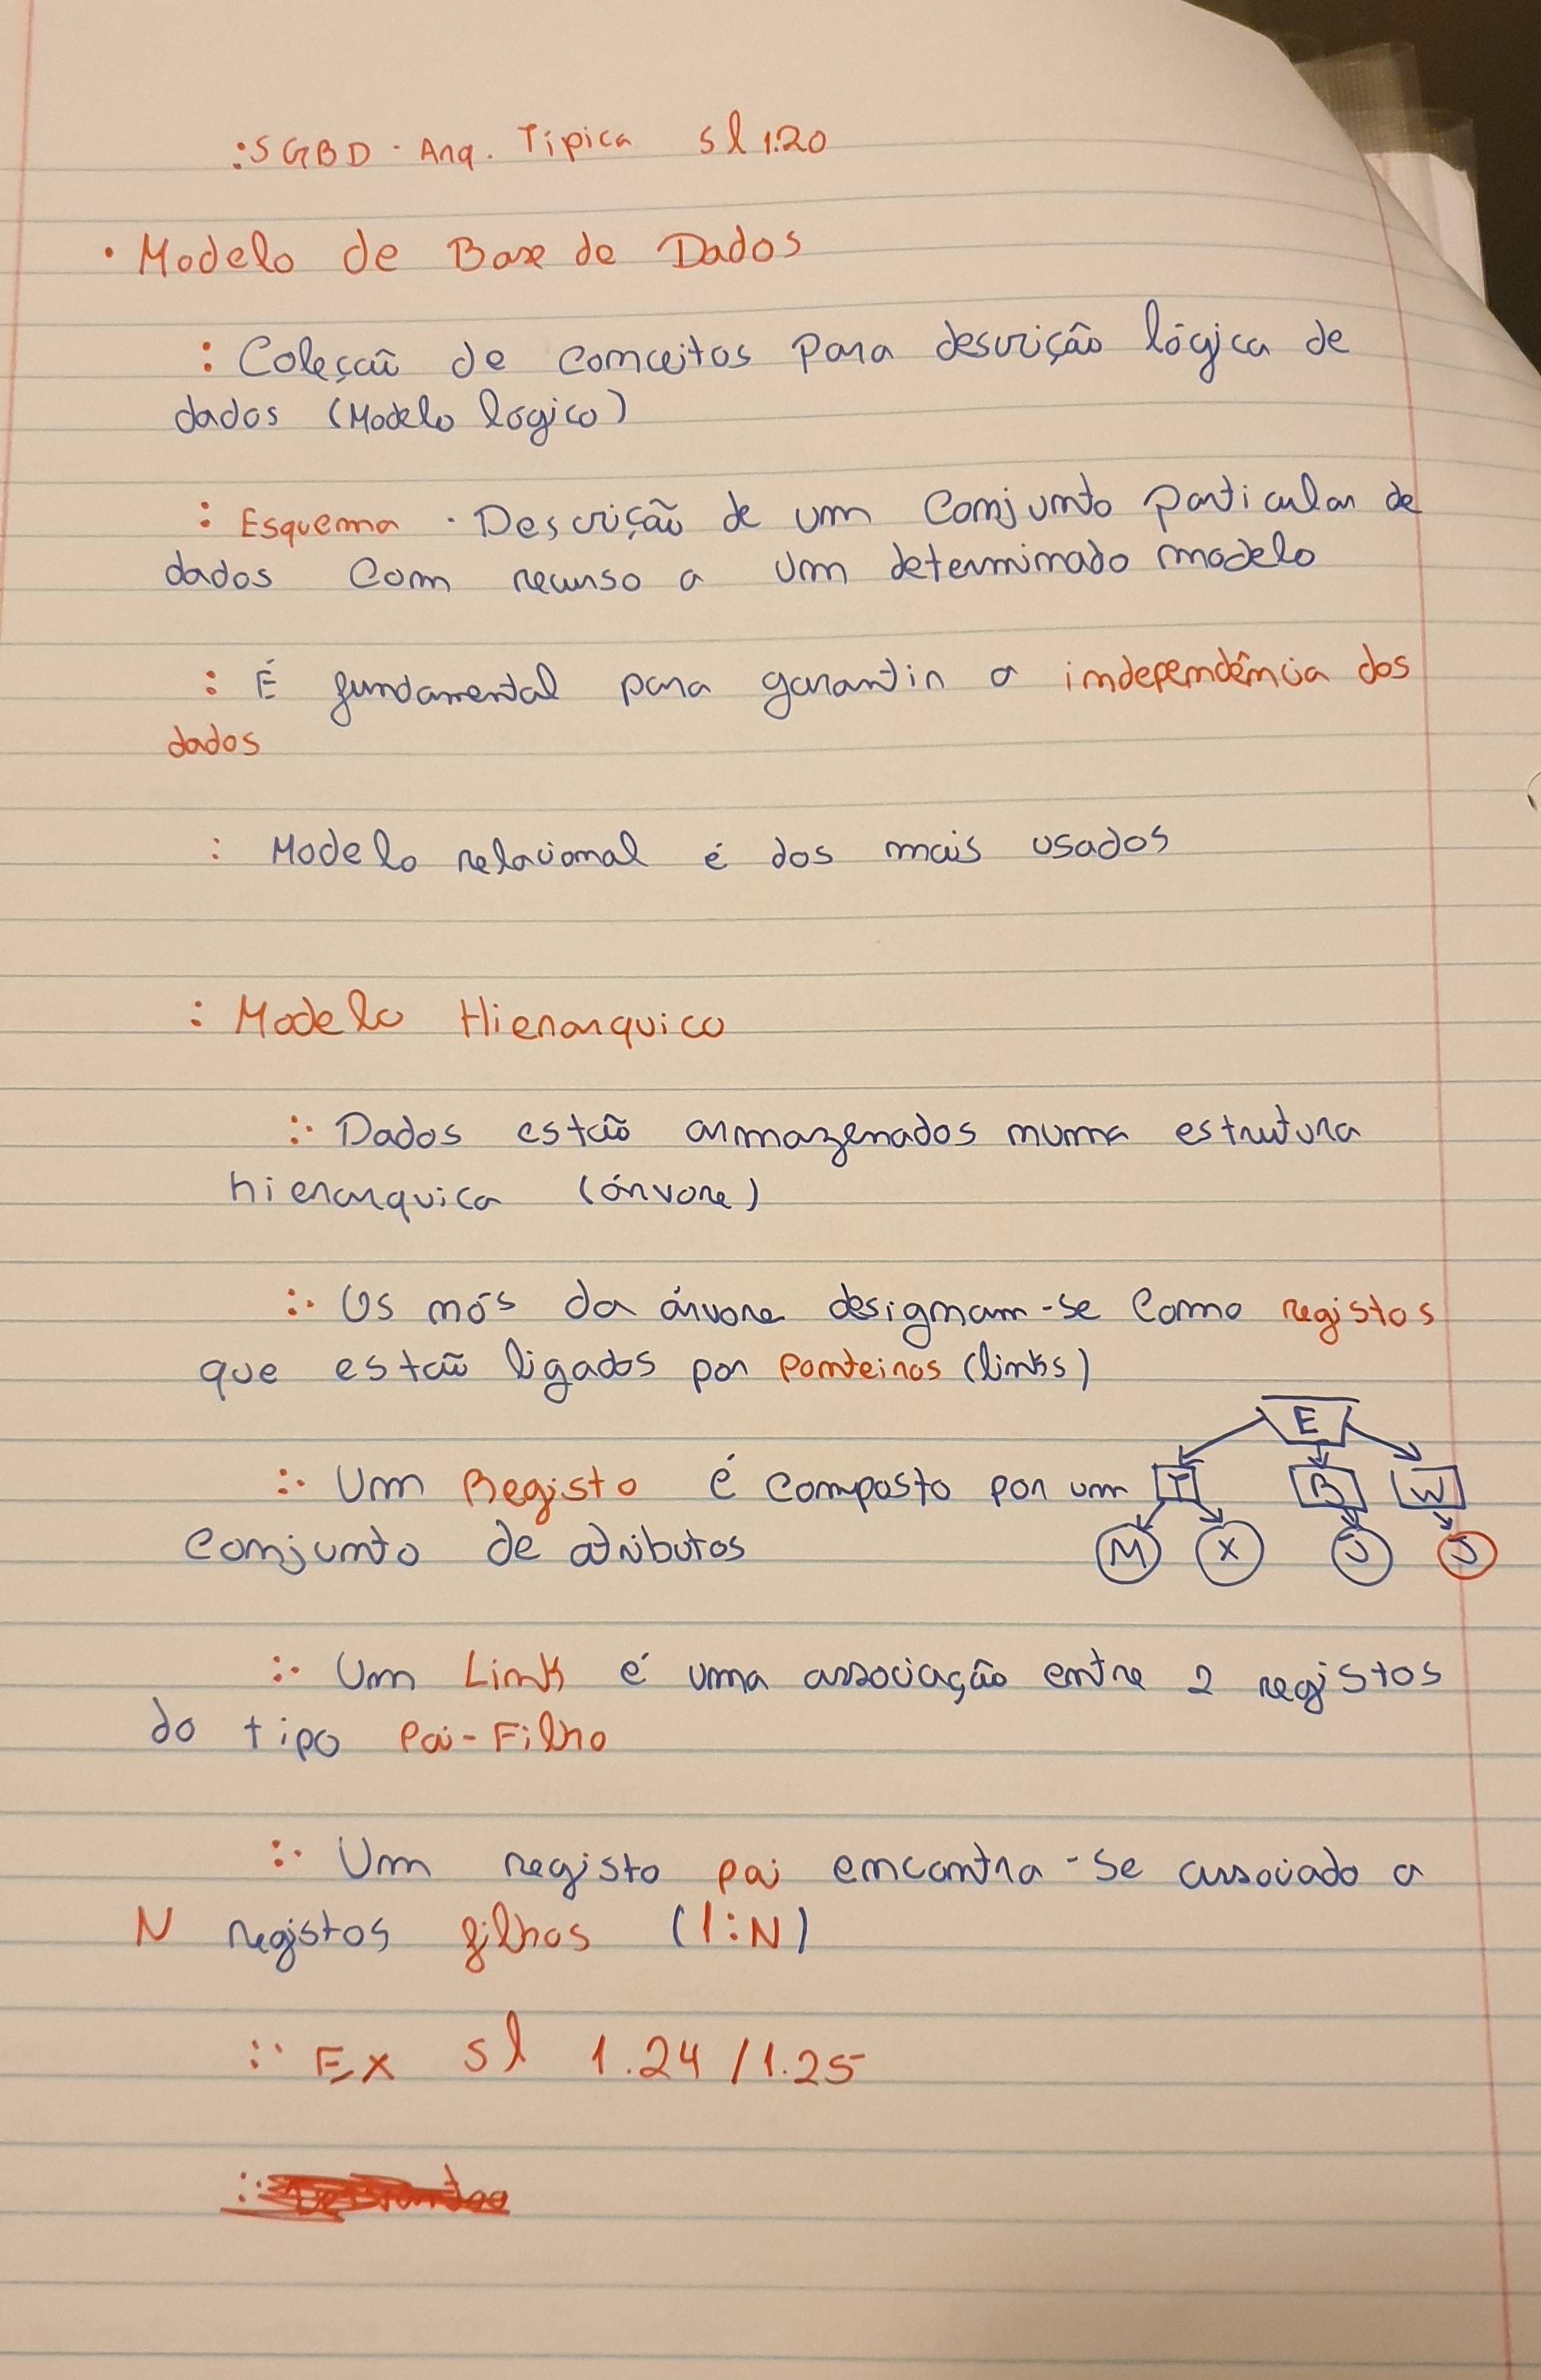 : SGBD · Arq. Típica sl 1.20
· Modelo de Base de Dados
: Coleção de conceitos para descrição lógica de
dados (Modelo lógico)
: Esquema · Descrição de um conjunto particular de
dados com recurso a um determinado modelo
: É fundamental para garantir a independência dos
dados
: Modelo relacional é dos mais usados
: Modelo Hierarquico
:· Dados estão armazenados numa estrutura
hierarquica (árvore)
:· Os nós da árvore designam-se como registos
que estão ligados por ponteiros (links)
E
:· Um Registo é composto por um
T B W
conjunto de atributos
M X J J
:· Um Link é uma associação entre 2 registos
do tipo Pai-Filho
:· Um registo pai encontra-se associado a
N registos filhos (1:N)
:· Ex sl 1.24 / 1.25